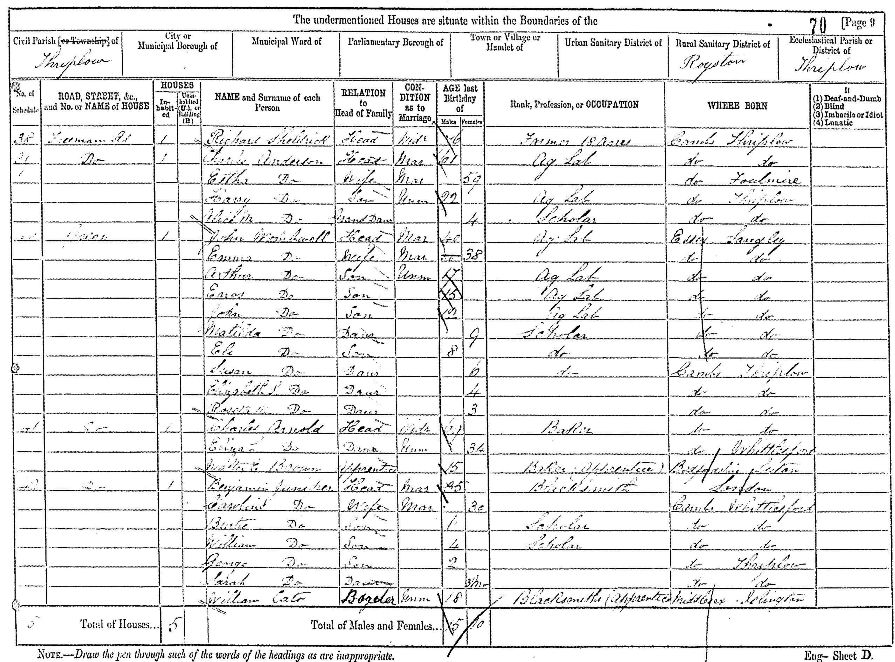 The undermentioned Houses are situate within the Boundaries of the
70 [Page 9
Civil Parish [or Township] of
City or Municipal Borough of
Municipal Ward of
Parliamentary Borough of
Town or Village or Hamlet of
Urban Sanitary District of
Rural Sanitary District of
Ecclesiastical Parish or District of
Thriplow
Royston
Thriplow
No. of Schedule
ROAD, STREET, &c., and No. or NAME of HOUSE
HOUSES
Inhabited
Uninhabited (U.), or Building (B.)
NAME and Surname of each Person
RELATION to Head of Family
CONDITION as to Marriage
AGE last Birthday of
Males
Females
Rank, Profession, or OCCUPATION
WHERE BORN
If
(1) Deaf-and-Dumb
(2) Blind
(3) Imbecile or Idiot
(4) Lunatic
38 1 Richard Sheldrick Head Farmer Acres Cambs Thriplow
Do 1 Anderson Head Mar 61 Ag Lab do do
Esther Do Wife Mar 59 do Foulmire
Harry Do Son Unm 22 Ag Lab do Thriplow
Do Grand Daur 4 Scholar do do
1 John Head Mar 40 Ag Lab Essex Langley
Emma Do Wife Mar 38 do do
Arthur Do Son Unm 17 Ag Lab do do
Do Son 15 Ag Lab do do
John Do Son 12 Ag Lab do do
Matilda Do Daur 9 Scholar do do
Eli Do Son 8 do do do
Susan Do Daur 6 do Cambs Thriplow
Elizabeth S. Do Daur 4 do do
Do Daur 3 do do
Do 1 Charles Arnold Head Baker do do
Do Daur Unm 34 do Whittlesford
Walter Brown Apprentice 15 Baker (Apprentice)
Do 1 Benjamin Juniper Head Mar 35 Blacksmith London
Caroline Do Wife Mar 30 Cambs Whittlesford
Do Son Scholar do do
William Do Son 4 Scholar do do
George Do Son 2 do Thriplow
Sarah Do Daur 3m do do
William Cato Boarder Unm 18 Blacksmiths (Apprentice Middlesex Islington
5 Total of Houses... 5 Total of Males and Females... 15 10
NOTE.—Draw the pen through such of the words of the headings as are inappropriate.
Eng—Sheet D.